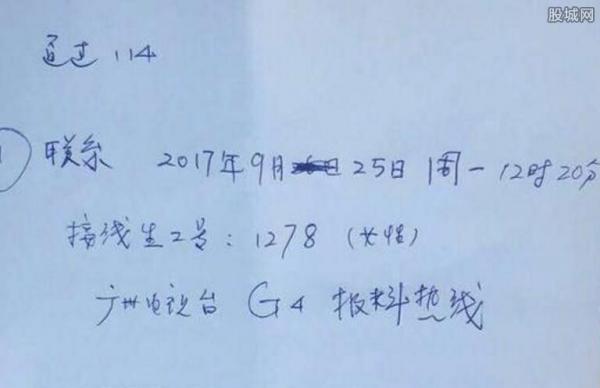 股城网
通过 114
1 联系 2017年9月25日 周一 12时20分
接线生工号：1278（女性）
广州电视台 G4 报料热线